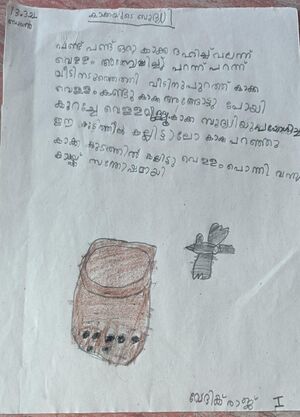 13.3.21
കാക്കയുടെ ബുദ്ധി
പണ്ട് പണ്ട് ഒരു കാക്ക ദാഹിച്ച് വലന്ന്
വെള്ളം അന്വേഷിച്ച് പറന്ന് പറന്ന്
വീടിനടുത്തെത്തി വീടിനുപുറത്ത് കാക്ക
വെള്ളം കണ്ടു കാക്ക അങ്ങോട്ടു പോയി
കുറച്ചേ വെള്ളമുള്ളൂ കാക്ക ബുദ്ധിയുപയോഗിച്ച്
ഈ കുടത്തിൽ കല്ലിട്ടാലോ കാക്ക പറഞ്ഞു
കാക്ക കുടത്തിൽ കല്ലിട്ടു വെള്ളം പൊന്തി വന്നു
കാക്കയ്ക്ക് സന്തോഷമായി
വേദിക് രാജ് I